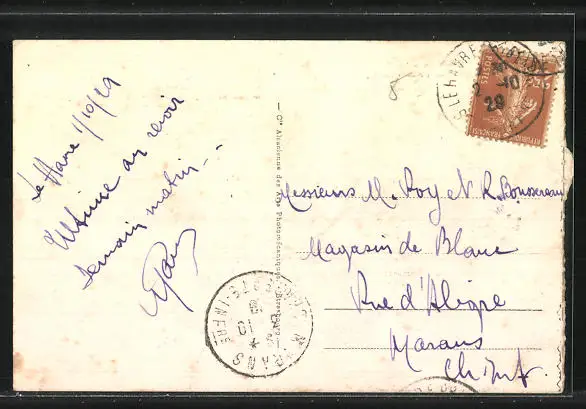 Le Havre 1/10/29
Ultime au revoir
Demain matin...
Cie Alsacienne des Arts Photomécaniques, Strasbourg
LE HAVRE
2 -10
29
POSTES
Messieurs M. Roy et R. Boussereau
Magasin de Blanc
Rue d'Aligre
Marans
Ch. Inf.
MARANS
CHARENTE-INFRE